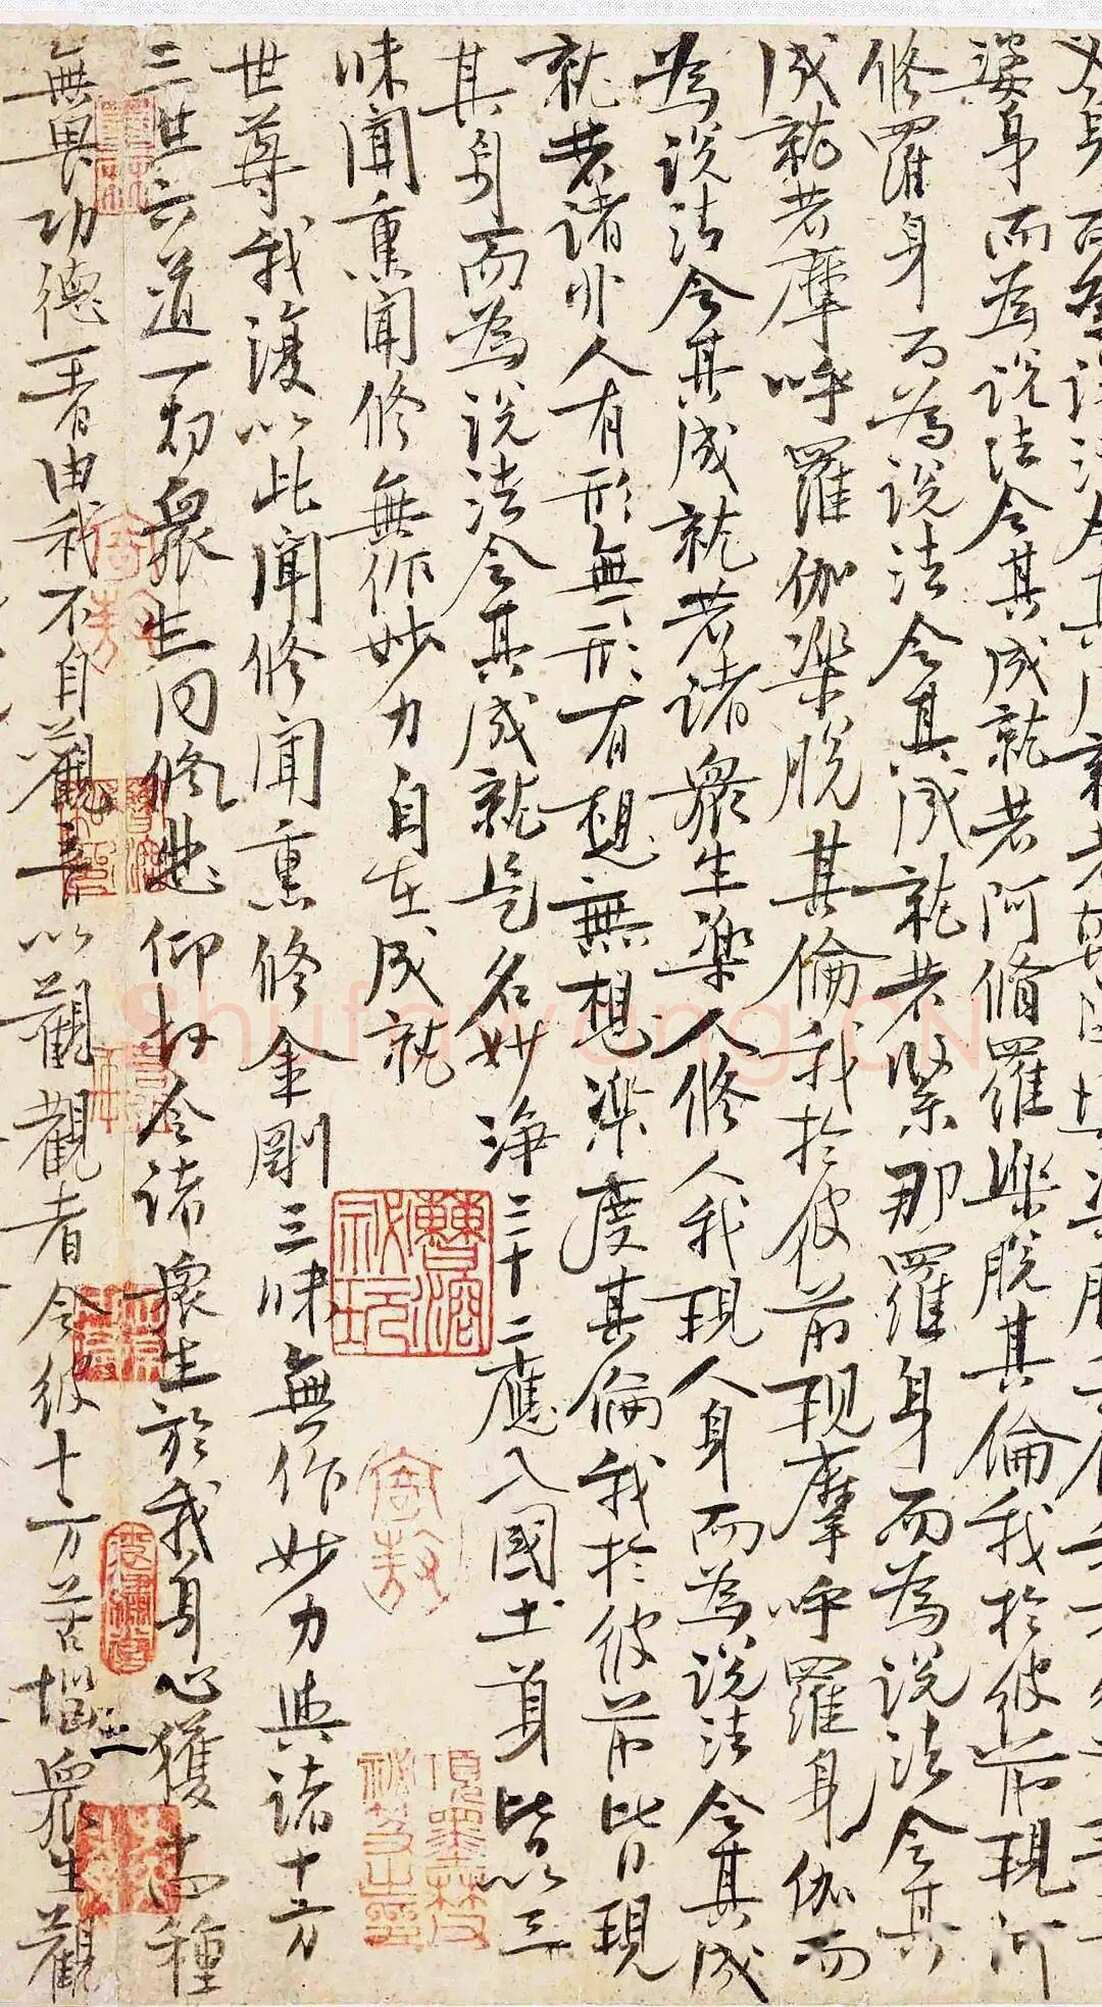 身而為說法令其成就若
婆身而為說法令其成就若阿脩羅樂脫其倫我於彼前現阿
修羅身而為說法令其成就若緊那羅身而為說法令其
成就若摩呼羅伽樂脫其倫我於彼前現摩呼羅身伽而
為說法令其成就若諸眾生樂人修人我現人身而為說法令其成
就若諸非人有形無形有想無想樂度其倫我於彼前皆現
其身而為說法令其成就是名妙淨三十二應入國土身皆以三
昧聞熏聞修無作妙力自在成就
世尊我復以此聞修聞熏修金剛三昧無作妙力與諸十方
三世六道一切眾生同修悲仰故令諸眾生於我身心獲十四種
無畏功德一者由我不自觀音以觀觀者令彼十方苦惱眾生觀
項墨林父
秘笈之印
Shufawang.CN